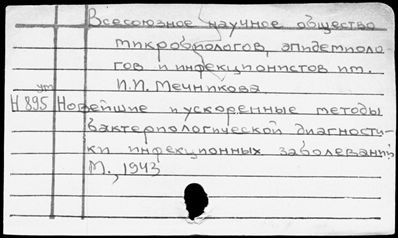 Всесоюзное научное общество
микробиологов, эпидемиоло-
гов и инфекционистов им.
И.И. Мечникова
ут
Н 895 Новейшие и ускоренные методы
бактериологической диагности-
ки инфекционных заболеваний
М., 1943